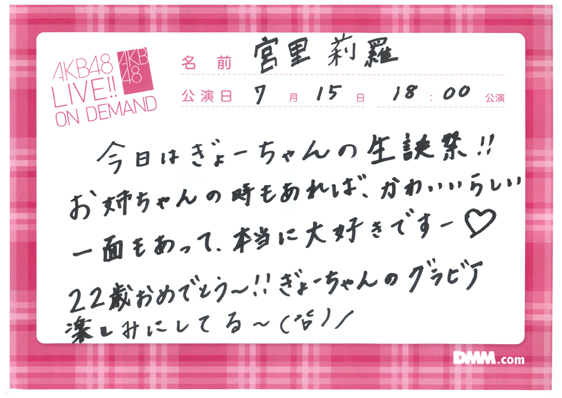 AKB48
LIVE!!
ON DEMAND
AKB
48
名前 宮里莉羅
公演日 7月15日 18:00公演
今日はぎょーちゃんの生誕祭!!
お姉ちゃんの時もあれば、かわいいらしい
一面もあって、本当に大好きですー♡
22歳おめでとう〜!!ぎょーちゃんのグラビア
楽しみにしてる〜
DMM.com